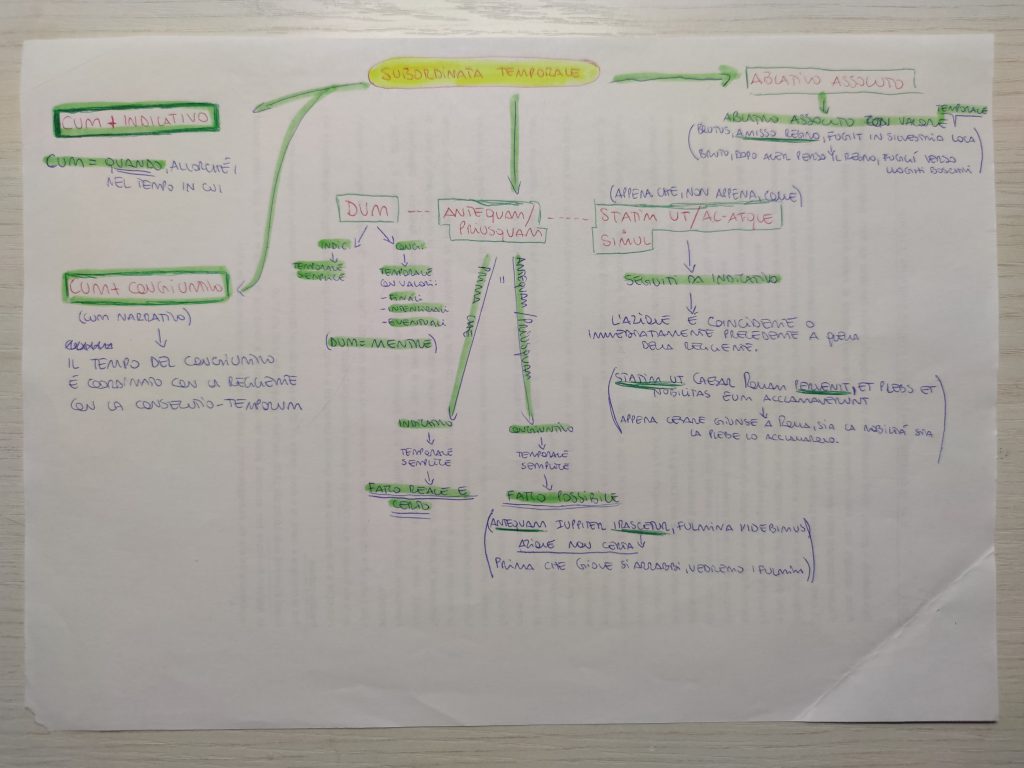 SUBORDINATA TEMPORALE
CUM + INDICATIVO
CUM = QUANDO, ALLORCHÉ,
NEL TEMPO IN CUI
CUM + CONGIUNTIVO
(CUM NARRATIVO)
IL TEMPO DEL CONGIUNTIVO
È COORDINATO CON LA REGGENTE
CON LA CONSECUTIO-TEMPORUM
DUM
INDIC
TEMPORALE
SEMPLICE
CONGIU
TEMPORALE
CON VALORI:
- FINALI
- INTENZIONALI
- EVENTUALI
(DUM = MENTRE)
ANTEQUAM/
PRIUSQUAM
PRIMA CHE
=
ANTEQUAM/PRIUSQUAM
INDICATIVO
TEMPORALE
SEMPLICE
FATTO REALE E
CERTO
CONGIUNTIVO
TEMPORALE
SEMPLICE
FATTO POSSIBILE
(ANTEQUAM IUPPITER IRASCETUR, FULMINA VIDEBIMUS)
AZIONE NON CERTA
(PRIMA CHE GIOVE SI ARRABBI, VEDREMO I FULMINI)
(APPENA CHE, NON APPENA, COME)
STATIM UT/AC-ATQUE
SIMUL
SEGUITI DA INDICATIVO
L'AZIONE È COINCIDENTE O
IMMEDIATAMENTE PRECEDENTE A QUELLA
DELLA REGGENTE.
(STATIM UT CAESAR ROMAM PERVENIT, ET PLEBS ET
NOBILITAS EUM ACCLAMAVERUNT
APPENA CESARE GIUNSE A ROMA, SIA LA NOBILTÀ SIA
LA PLEBE LO ACCLAMARONO.)
ABLATIVO ASSOLUTO
ABLATIVO ASSOLUTO CON VALORE TEMPORALE
(BRUTUS, AMISSO REGNO, FUGIT IN SILVESTRIA LOCA
BRUTO, DOPO AVER PERSO IL REGNO, FUGGÌ VERSO
LUOGHI BOSCHIVI)